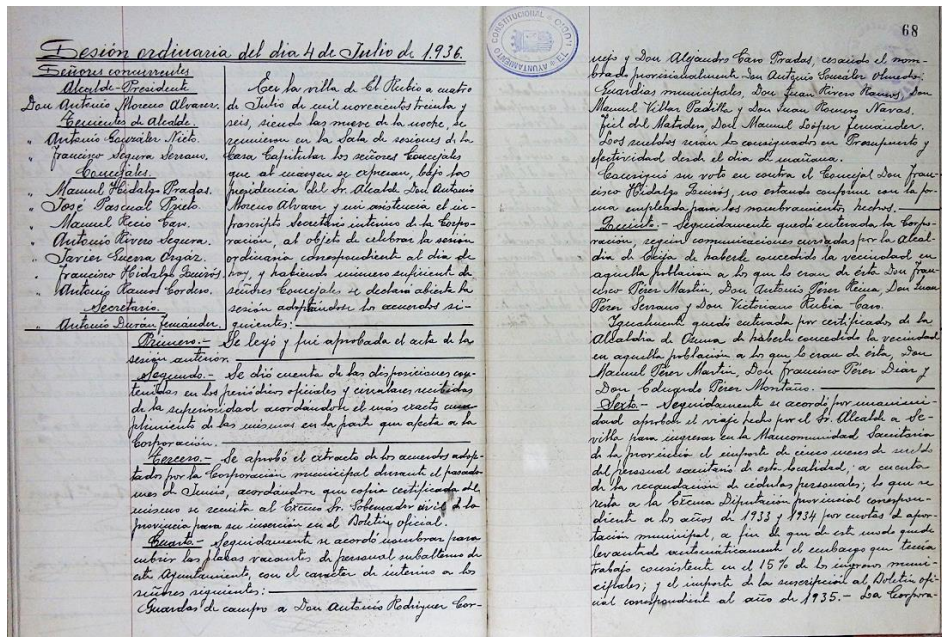 Sesión ordinaria del dia 4 de Julio de 1.936.
Señores concurrentes
Alcalde-Presidente
Don Antonio Moreno Alvarez.
Tenientes de Alcalde.
" Antonio González Nieto.
" Francisco Segura Serrano.
Concejales.
" Manuel Hidalgo Pradas.
" José Pascual Prieto.
" Manuel Recio Caro.
" Antonio Rivero Segura.
" Javier Guerra Orgaz.
" Francisco Hidalgo Quirós.
" Antonio Ramos Cordero.
Secretario.
" Antonio Durán Fernández.
En la villa de El Rubio a cuatro
de Julio de mil novecientos treinta y
seis, siendo las nueve de la noche, se
reunieron en la Sala de sesiones de la
Casa Capitular los señores Concejales
que al margen se expresan, bajo la
presidencia del Sr. Alcalde Don Antonio
Moreno Alvarez y mi asistencia el in-
frascripto Secretario interino de la Corpo-
ración, al objeto de celebrar la sesión
ordinaria correspondiente al dia de
hoy, y habiendo número suficiente de
señores Concejales se declaró abierta la
sesión adoptándose los acuerdos si-
guientes:
Primero.- Se leyó y fué aprobada el acta de la
sesión anterior.
Segundo.- Se dió cuenta de las disposiciones con-
tenidas en los periódicos oficiales y circulares recibidas
de la superioridad acordándose el mas exacto cum-
plimiento de las mismas en la parte que afecta a la
Corporación.
Tercero.- Se aprobó el extracto de los acuerdos adop-
tados por la Corporación municipal durante el pasado
mes de Junio, acordándose que copia certificada del
mismo se remita al Excmo Sr. Gobernador civil de la
provincia para su inserción en el Boletín oficial.
Cuarto.- Seguidamente se acordó nombrar para
cubrir las plazas vacantes de personal subalterno de
este Ayuntamiento, con el carácter de interino a los
señores siguientes:
Guardas de campo a Don Antonio Rodriguez Cor-
AYUNTAMIENTO CONSTITUCIONAL
68
nejo y Don Alejandro Caro Pradas, cesando el nom-
brado provisionalmente Don Antonio González Olmedo;
Guardias municipales, Don Juan Rivero Ramos, Don
Manuel Villar Padilla y Don Juan Romero Navas.
Fiel del Matadero, Don Manuel López Fernández.
Los sueldos serán los consignados en Presupuesto y
efectividad desde el dia de mañana.
Consignó su voto en contra el Concejal Don Fran-
cisco Hidalgo Quirós, no estando conforme con la for-
ma empleada para los nombramientos hechos.
Quinto.- Seguidamente quedó enterada la Corpo-
ración, según comunicaciones cursadas por la Alcal-
día de Ecija de haberle concedido la vecindad en
aquella población a los que lo eran de ésta Don Fran-
cisco Pérez Martín, Don Antonio Pérez Reina, Don Juan
Pérez Serrano y Don Victoriano Rubia Caro.
Igualmente quedó enterada por certificados de la
Alcaldia de Osuna de haberle concedido la vecindad
en aquella población a los que lo eran de ésta, Don
Manuel Pérez Martín, Don Francisco Pérez Diaz y
Don Eduardo Pérez Montaño.
Sexto.- Seguidamente se acordó por unanimi-
dad aprobar el viaje hecho por el Sr. Alcalde a Se-
villa para ingresar en la Mancomunidad Sanitaria
de la provincia el importe de cinco meses de sueldo
del personal sanitario de esta localidad; a cuenta
de la recaudación de cédulas personales; lo que se
resta a la Excma Diputación provincial correspon-
diente a los años de 1933 y 1934 por cuotas de apor-
tación municipal, a fin de que de este modo quede
levantado automáticamente el embargo que tenía
trabado consistente en el 15% de los ingresos muni-
cipales; y el importe de la suscripción al Boletín ofi-
cial correspondiente al año de 1935.- La Corpora-